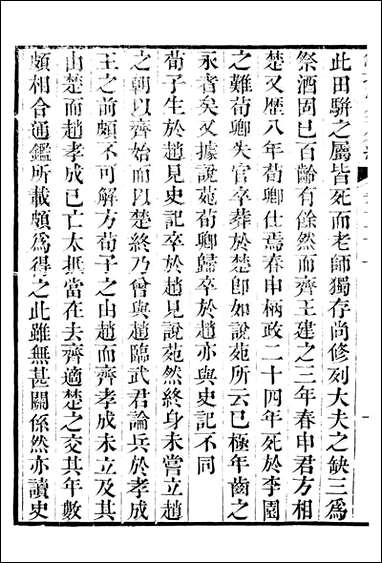 此田駢之屬皆死而老師獨存尚修列大夫之缺三爲
祭酒固已百齡有餘然而齊王建之三年春申君方相
楚又歷八年荀卿仕焉春申柄政二十四年死於李園
之難荀卿失官卒葬於楚卽如說苑所云已極年齒之
永者矣又據說苑荀卿歸卒於趙亦與史記不同
荀子生於趙見史記卒於趙見說苑然終身未嘗立趙
之朝以齊始而以楚終乃曾與趙臨武君論兵於孝成
王之前頗不可解方荀子之由趙而齊孝成未立及其
由楚而趙孝成已亡太抵當在去齊適楚之交其年數
頗相合通鑑所載頗爲得之此雖無甚關係然亦讀史